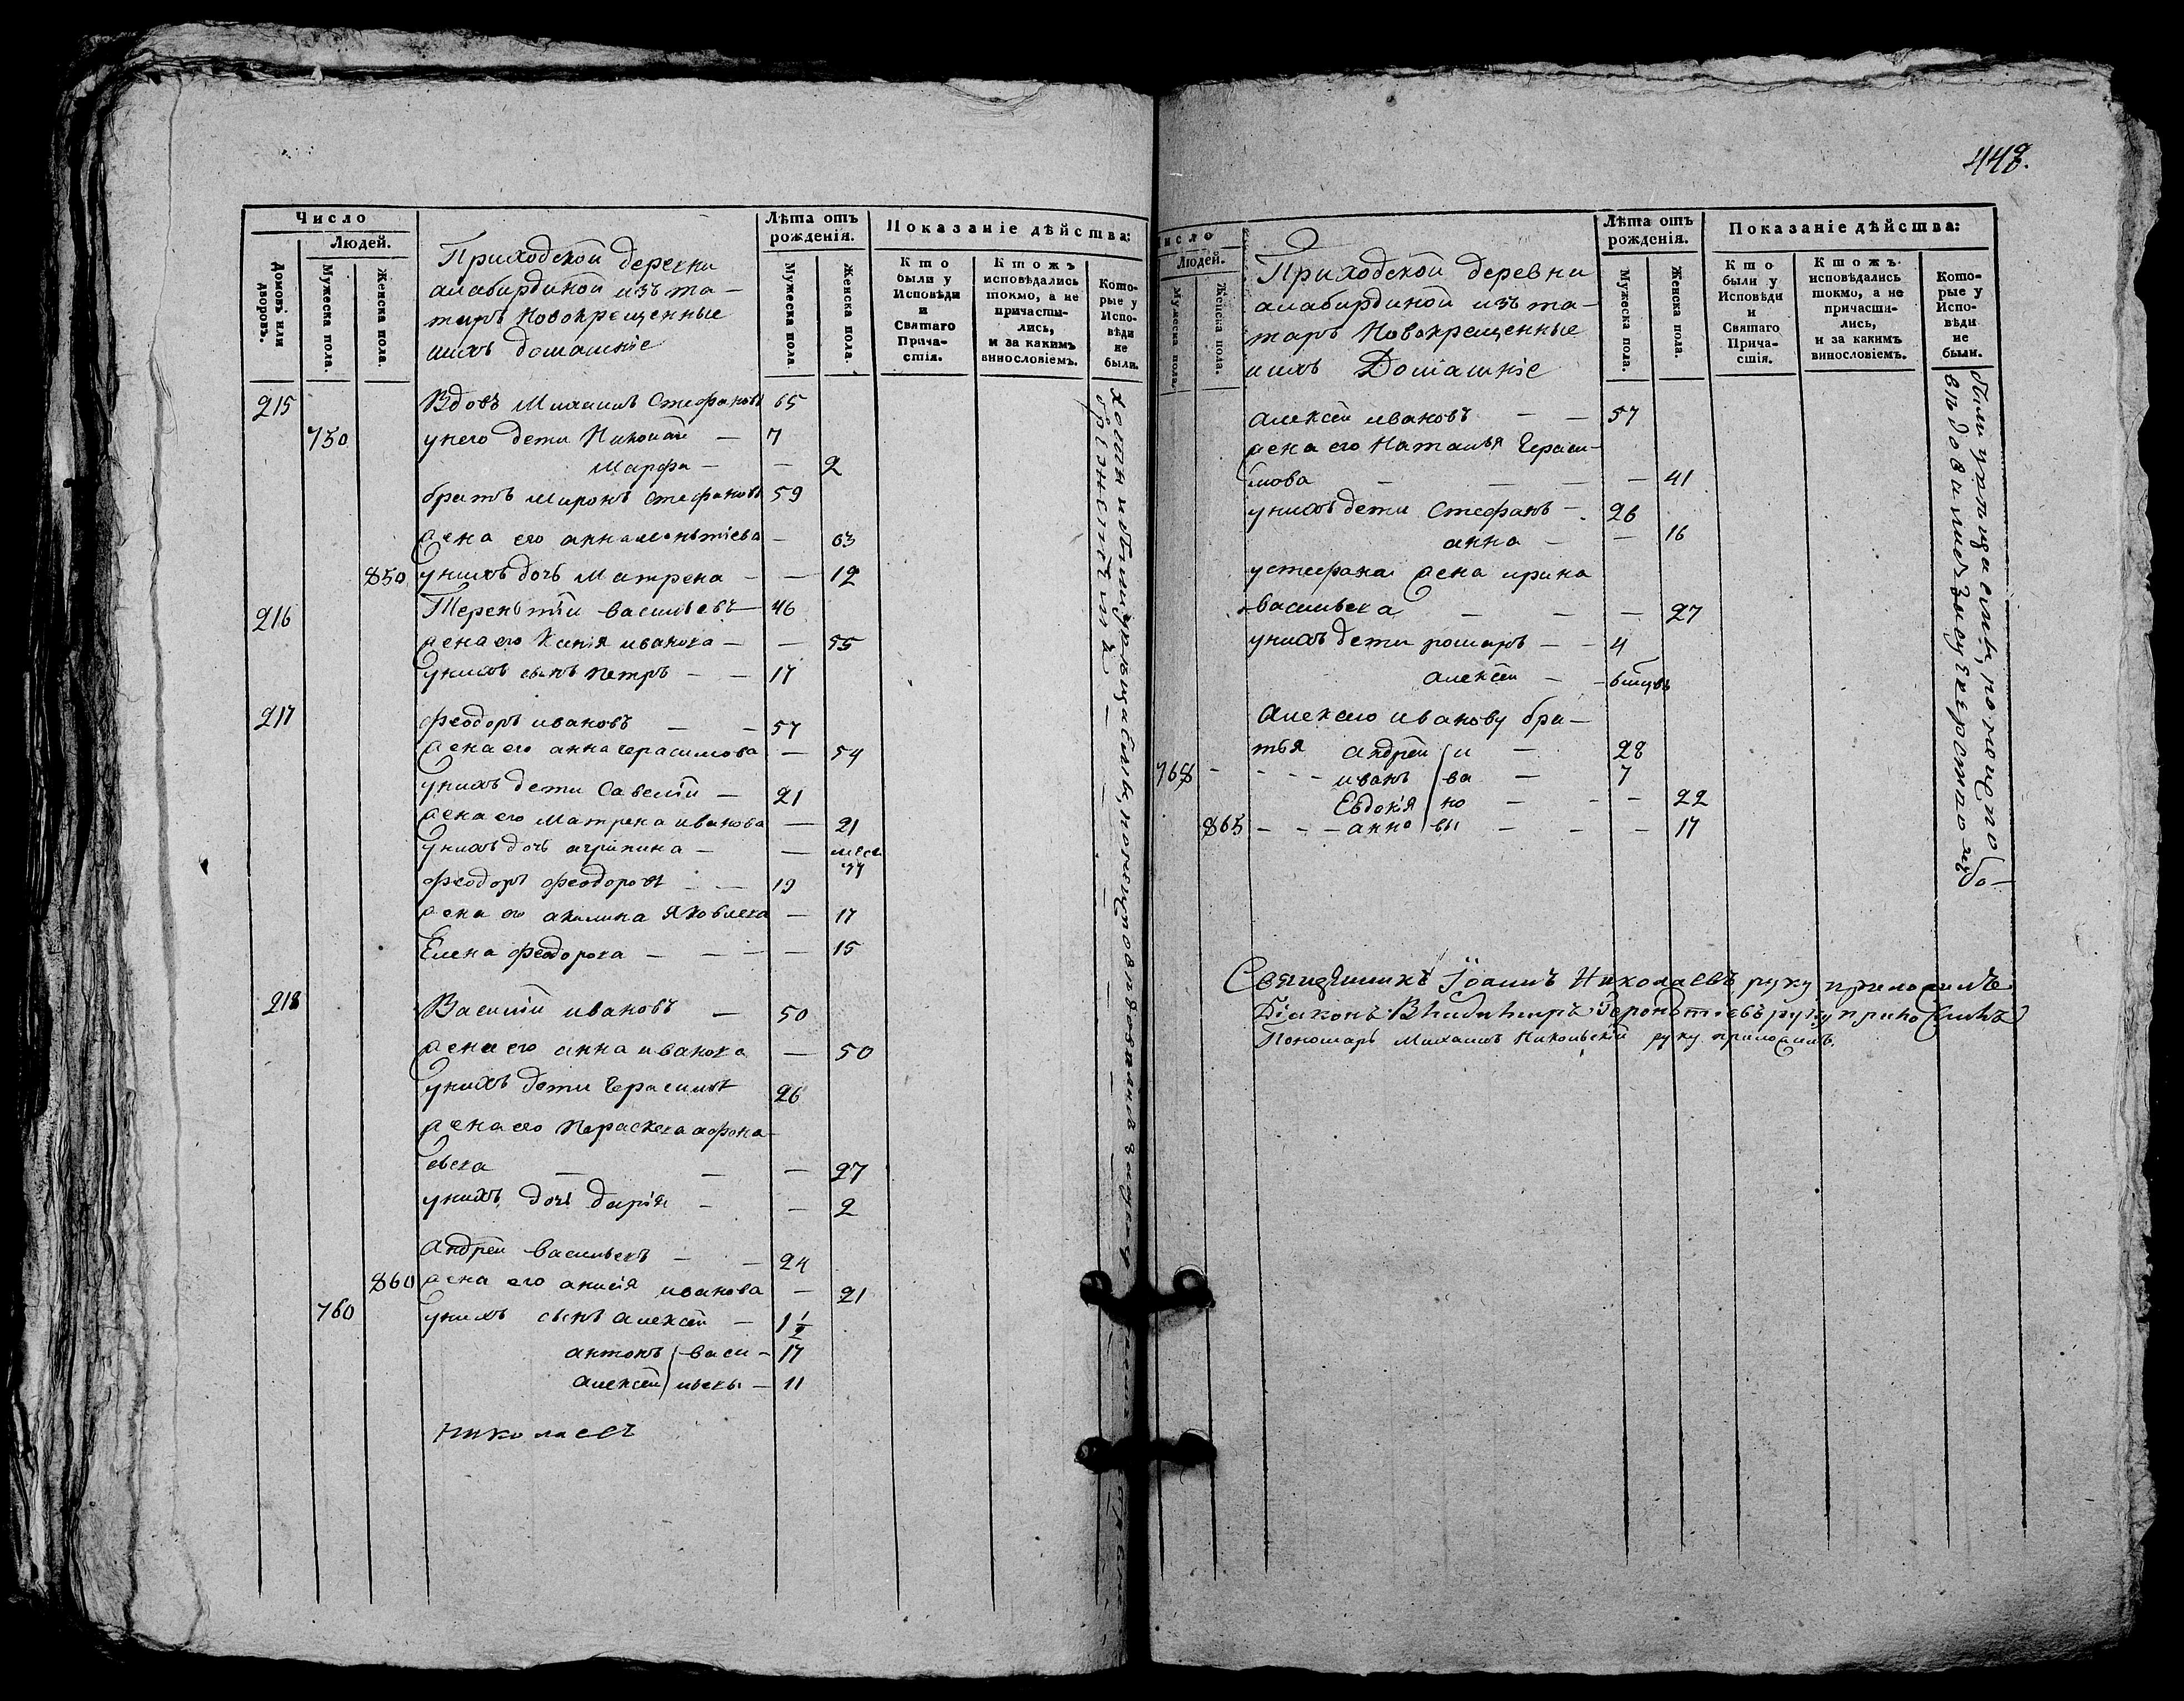 Число
Людей.
Домовъ или дворовъ.
Мужеска пола.
Женска пола.
Приходской деревни
алабирдиной изъ та-
таръ Новокрещенные
ихъ домашніе
Лѣта отъ рожденія.
Мужеска пола.
Женска пола.
Показаніе дѣйства:
Кто были у Исповѣди и Святаго Причастія.
Ктожъ исповѣдались токмо, а не причастились, и за какимъ винословіемъ.
Которые у Исповѣди не были.
215 Вдовъ Михаилъ Стефановъ 65
750 унего дети Николай — 7
Марфа — — 2
братъ Миронъ Стефановъ 59
жена его анна леонтіева — 63
850 унихъ дочь Матрена — — 12
216 Терентій васильевъ — 46
жена его Ксенія иванова — — 55
унихъ сынъ петръ — — 17
217 феодоръ ивановъ — — 57
жена его анна герасимова — 54
унихъ дети Савелій — 21
жена его Матрена иванова — 21
унихъ дочь агрипина — —
феодоръ феодоровъ — — 19
жена его акилина яковлева — 17
Елена феодорова — — — — 15
218 Василій ивановъ — 50
жена его анна иванова — 50
унихъ дети герасимъ 26
жена его параскева афона-
сьева — — — 27
унихъ дочь дарія — — 2
андрей васильевъ — — 24
860 жена его анисія иванова — 21
760 унихъ сынъ алексей — 1 1/2
антонъ васи- 17
алексей льевы — 11
Николаевъ
448.
Число
Людей.
Мужеска пола.
Женска пола.
Приходской деревни
алабирдиной изъ та-
таръ Новокрещенные
ихъ Домашніе
Лѣта отъ рожденія.
Мужеска пола.
Женска пола.
Показаніе дѣйства:
Кто были у Исповѣди и Святаго Причастія.
Ктожъ исповѣдались токмо, а не причастились, и за какимъ винословіемъ.
Которые у Исповѣди не были.
алексей ивановъ — — 57
жена его Наталья Гераси-
мова — — — — 41
унихъ дети Стефанъ — 26
анна — — 16
устефана жена ирина
васильева — — — 27
унихъ дети — — 4
алексей —
Алексею иванову бра-
тья андрей и — 28
768 — — — иванъ ва — 7
Евдокія но — — — 22
865 — — — анна вы — — — 17
Священникъ Іоаннъ Николаевъ руку приложилъ
Діаконъ Владимиръ Терентіевъ руку приложилъ
Пономарь Михаилъ Никольскій руку приложилъ.